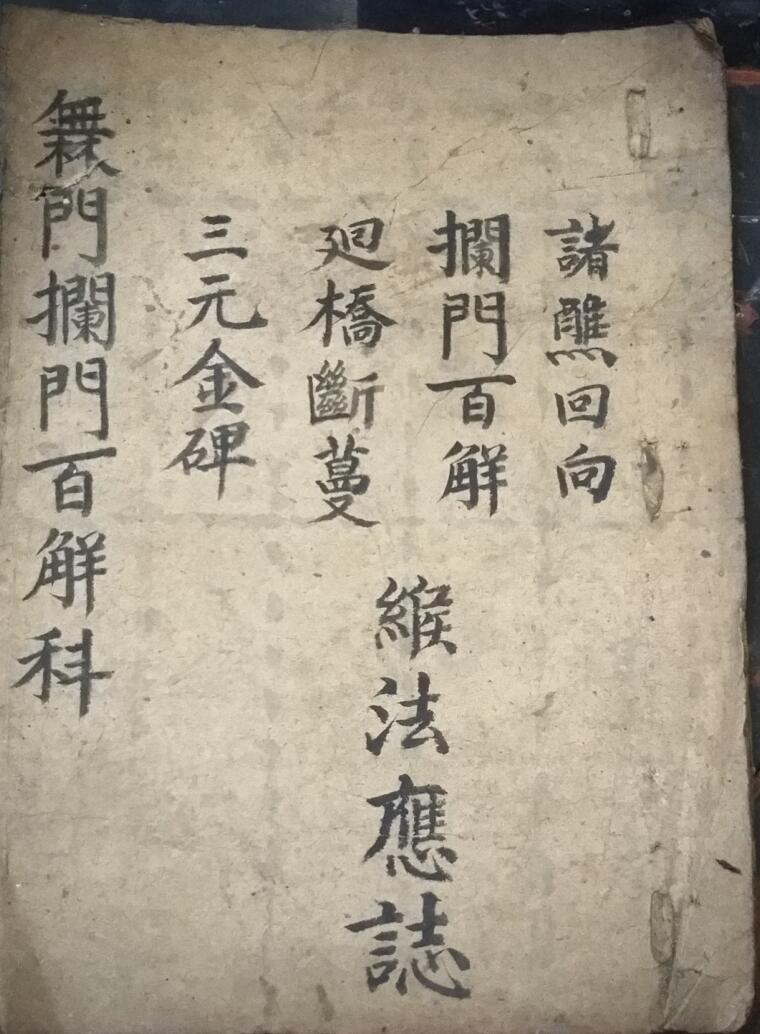 諸醮回向
攔門百解
廻橋斷蔓
三元金碑
緱法應誌
門攔門百解科